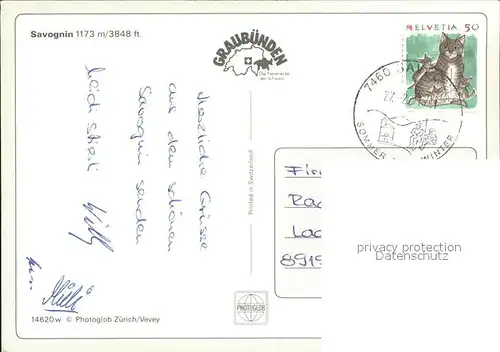 Savognin 1173 m/3848 ft.
GRAUBÜNDEN
Die Ferienecke
der Schweiz
HELVETIA 50
7460 SA
27.
SOMMER WINTER
Herzliche Grüsse
aus dem schönen
Savognin senden
Heidi
Willy
Printed in Switzerland
Fir
Ra
La
8919
privacy protection
Datenschutz
PHOTOGLOB
14620w © Photoglob Zürich/Vevey